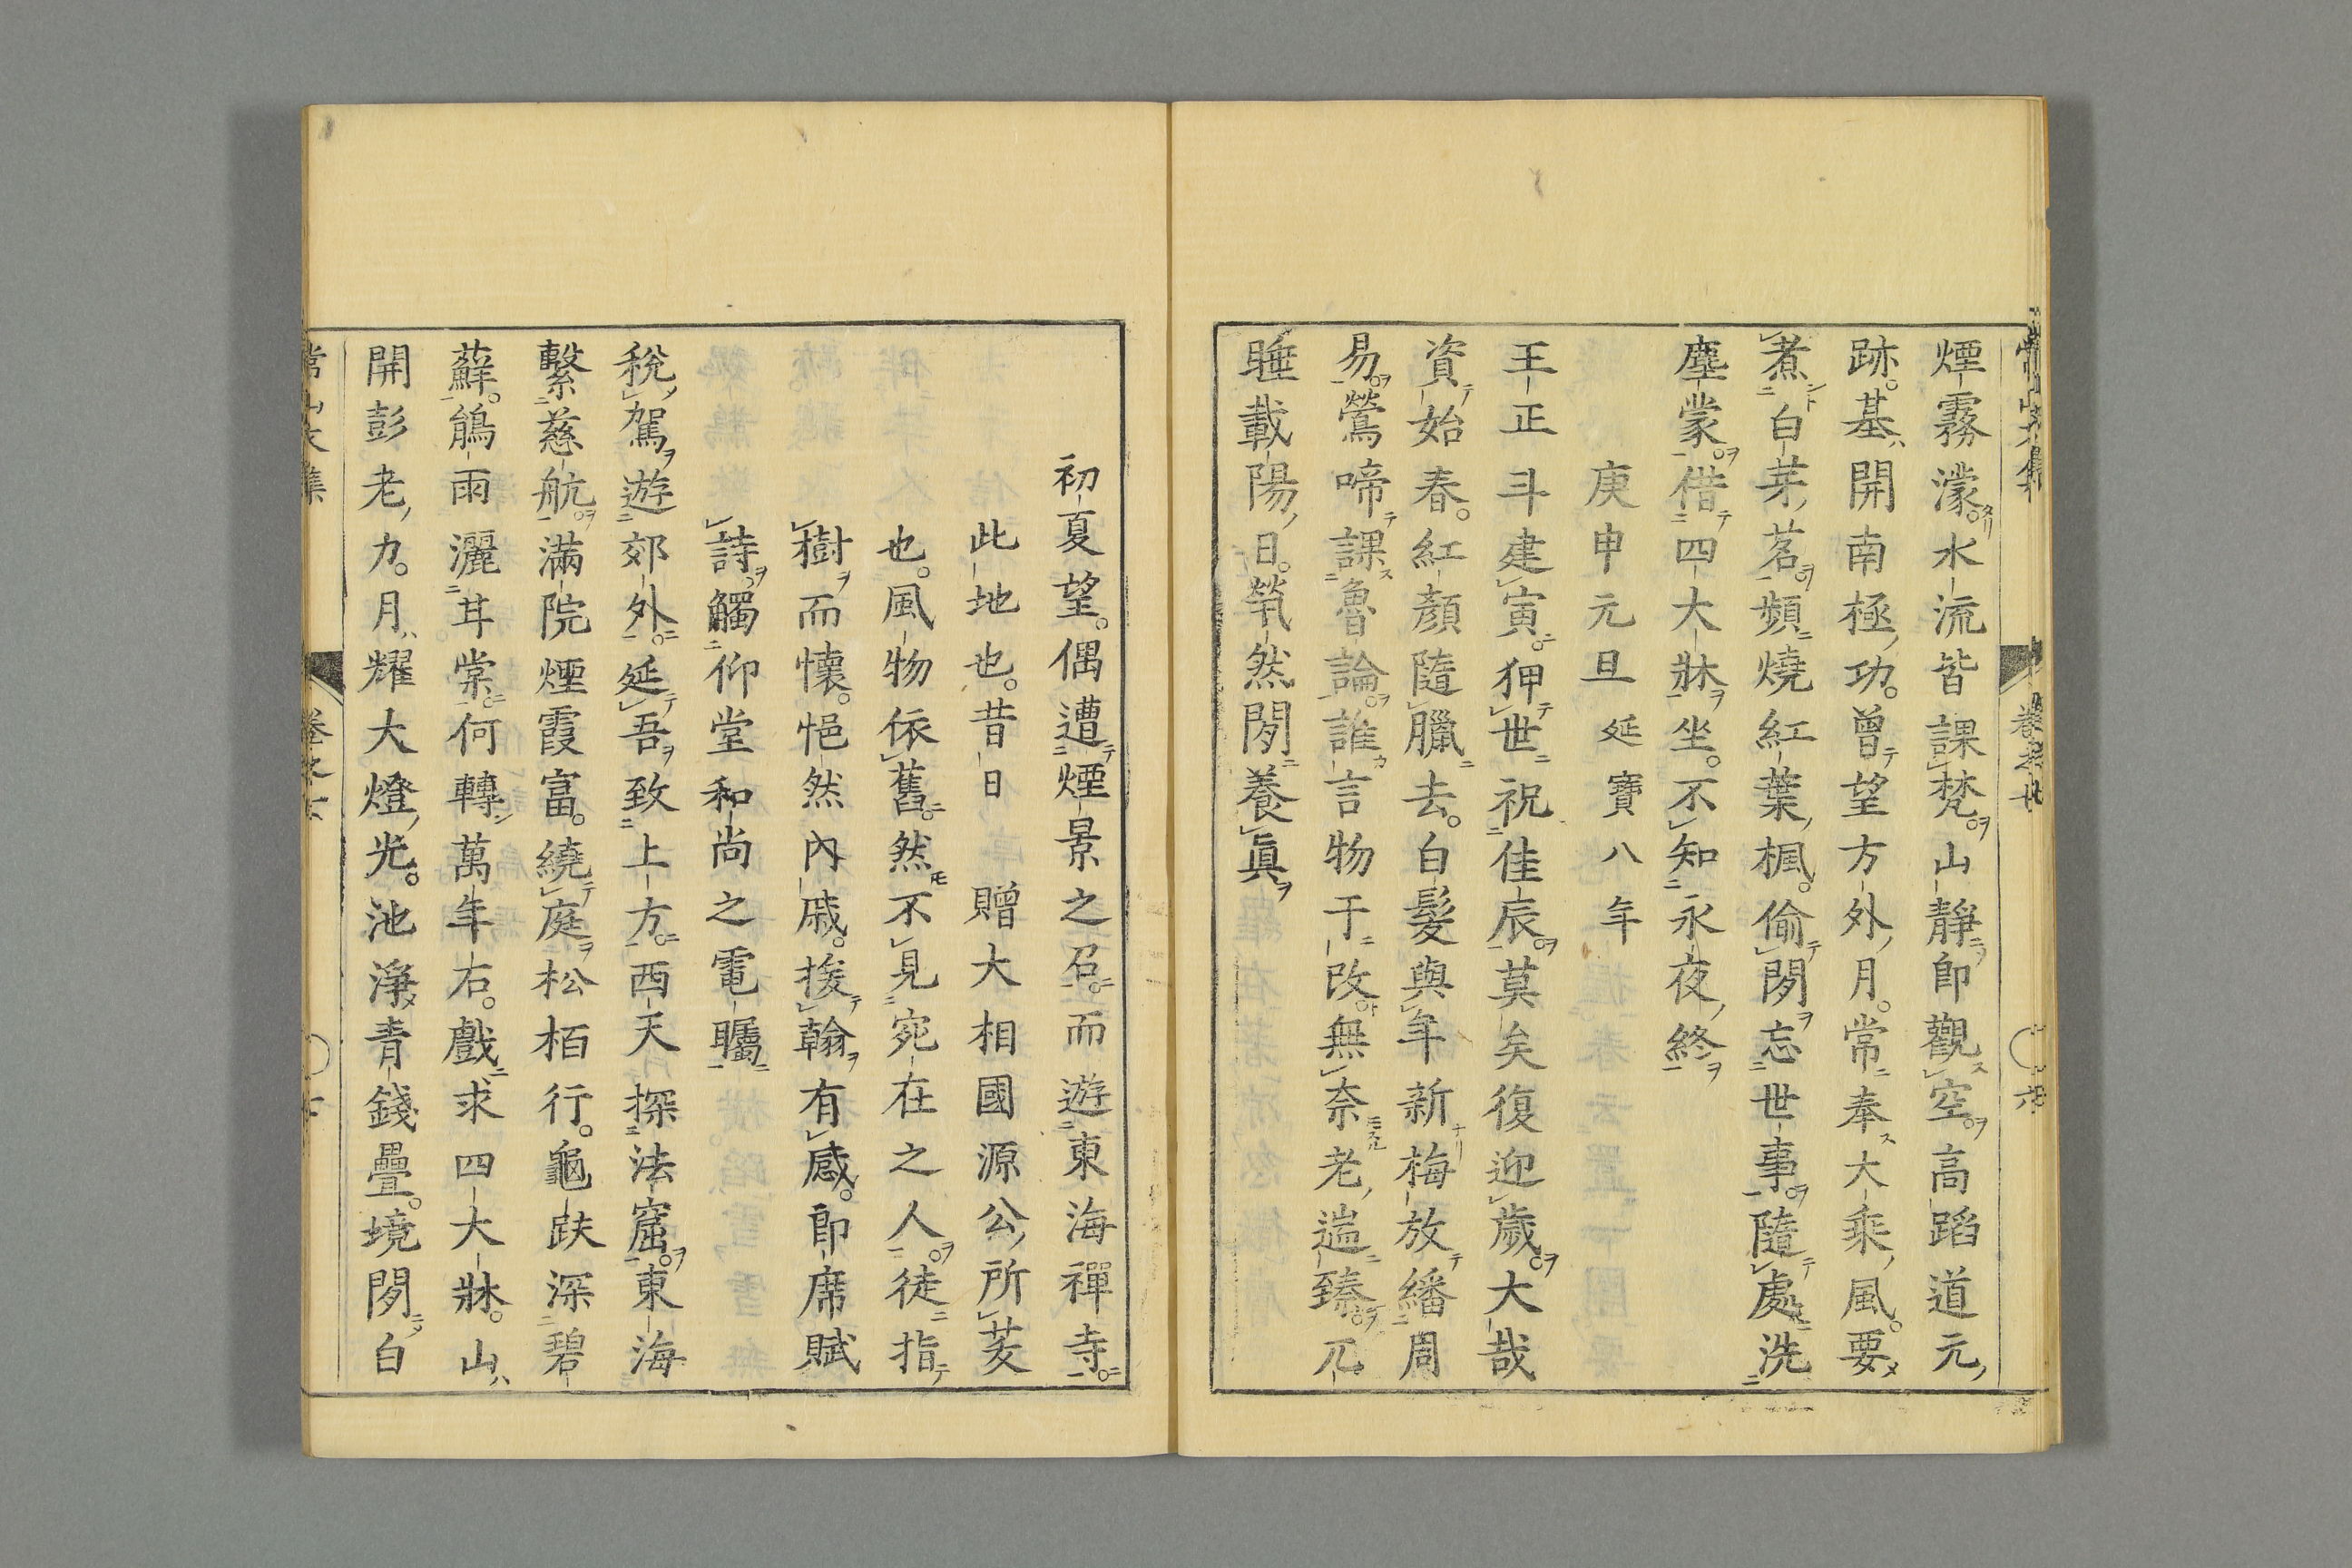 煙霧濛水流皆課梵山靜卽觀空高蹈道元
跡基開南極功曾望方外月常奉大乘風要
煮白茅茗頻燒紅葉楓偷閑忘世事隨處洗
塵蒙借四大牀坐不知永夜終
庚申元旦延寶八年
王正斗建寅狎世祝佳辰莫矣復迎歲大哉
資始春紅顏隨臘去白髮與年新梅放繙周
易鶯啼課魯論誰言物于改無奈老遄臻兀
睡載陽日煢然閑養眞
初夏望偶遭煙景之召而遊東海禪寺
此地也昔日 贈大相國源公所芟
也風物依舊然不見宛在之人徒指
樹而懷悒然內戚接翰有感卽席賦
詩觸仰堂和尚之電矚
稅駕遊郊外延吾致上方西天探法窟東海
繫慈航滿院煙霞富繞庭松栢行龜趺深碧
蘚鵑雨灑甘棠何轉萬年右戲求四大牀山
開彭老力月耀大燈光池淨青錢疊境閑白